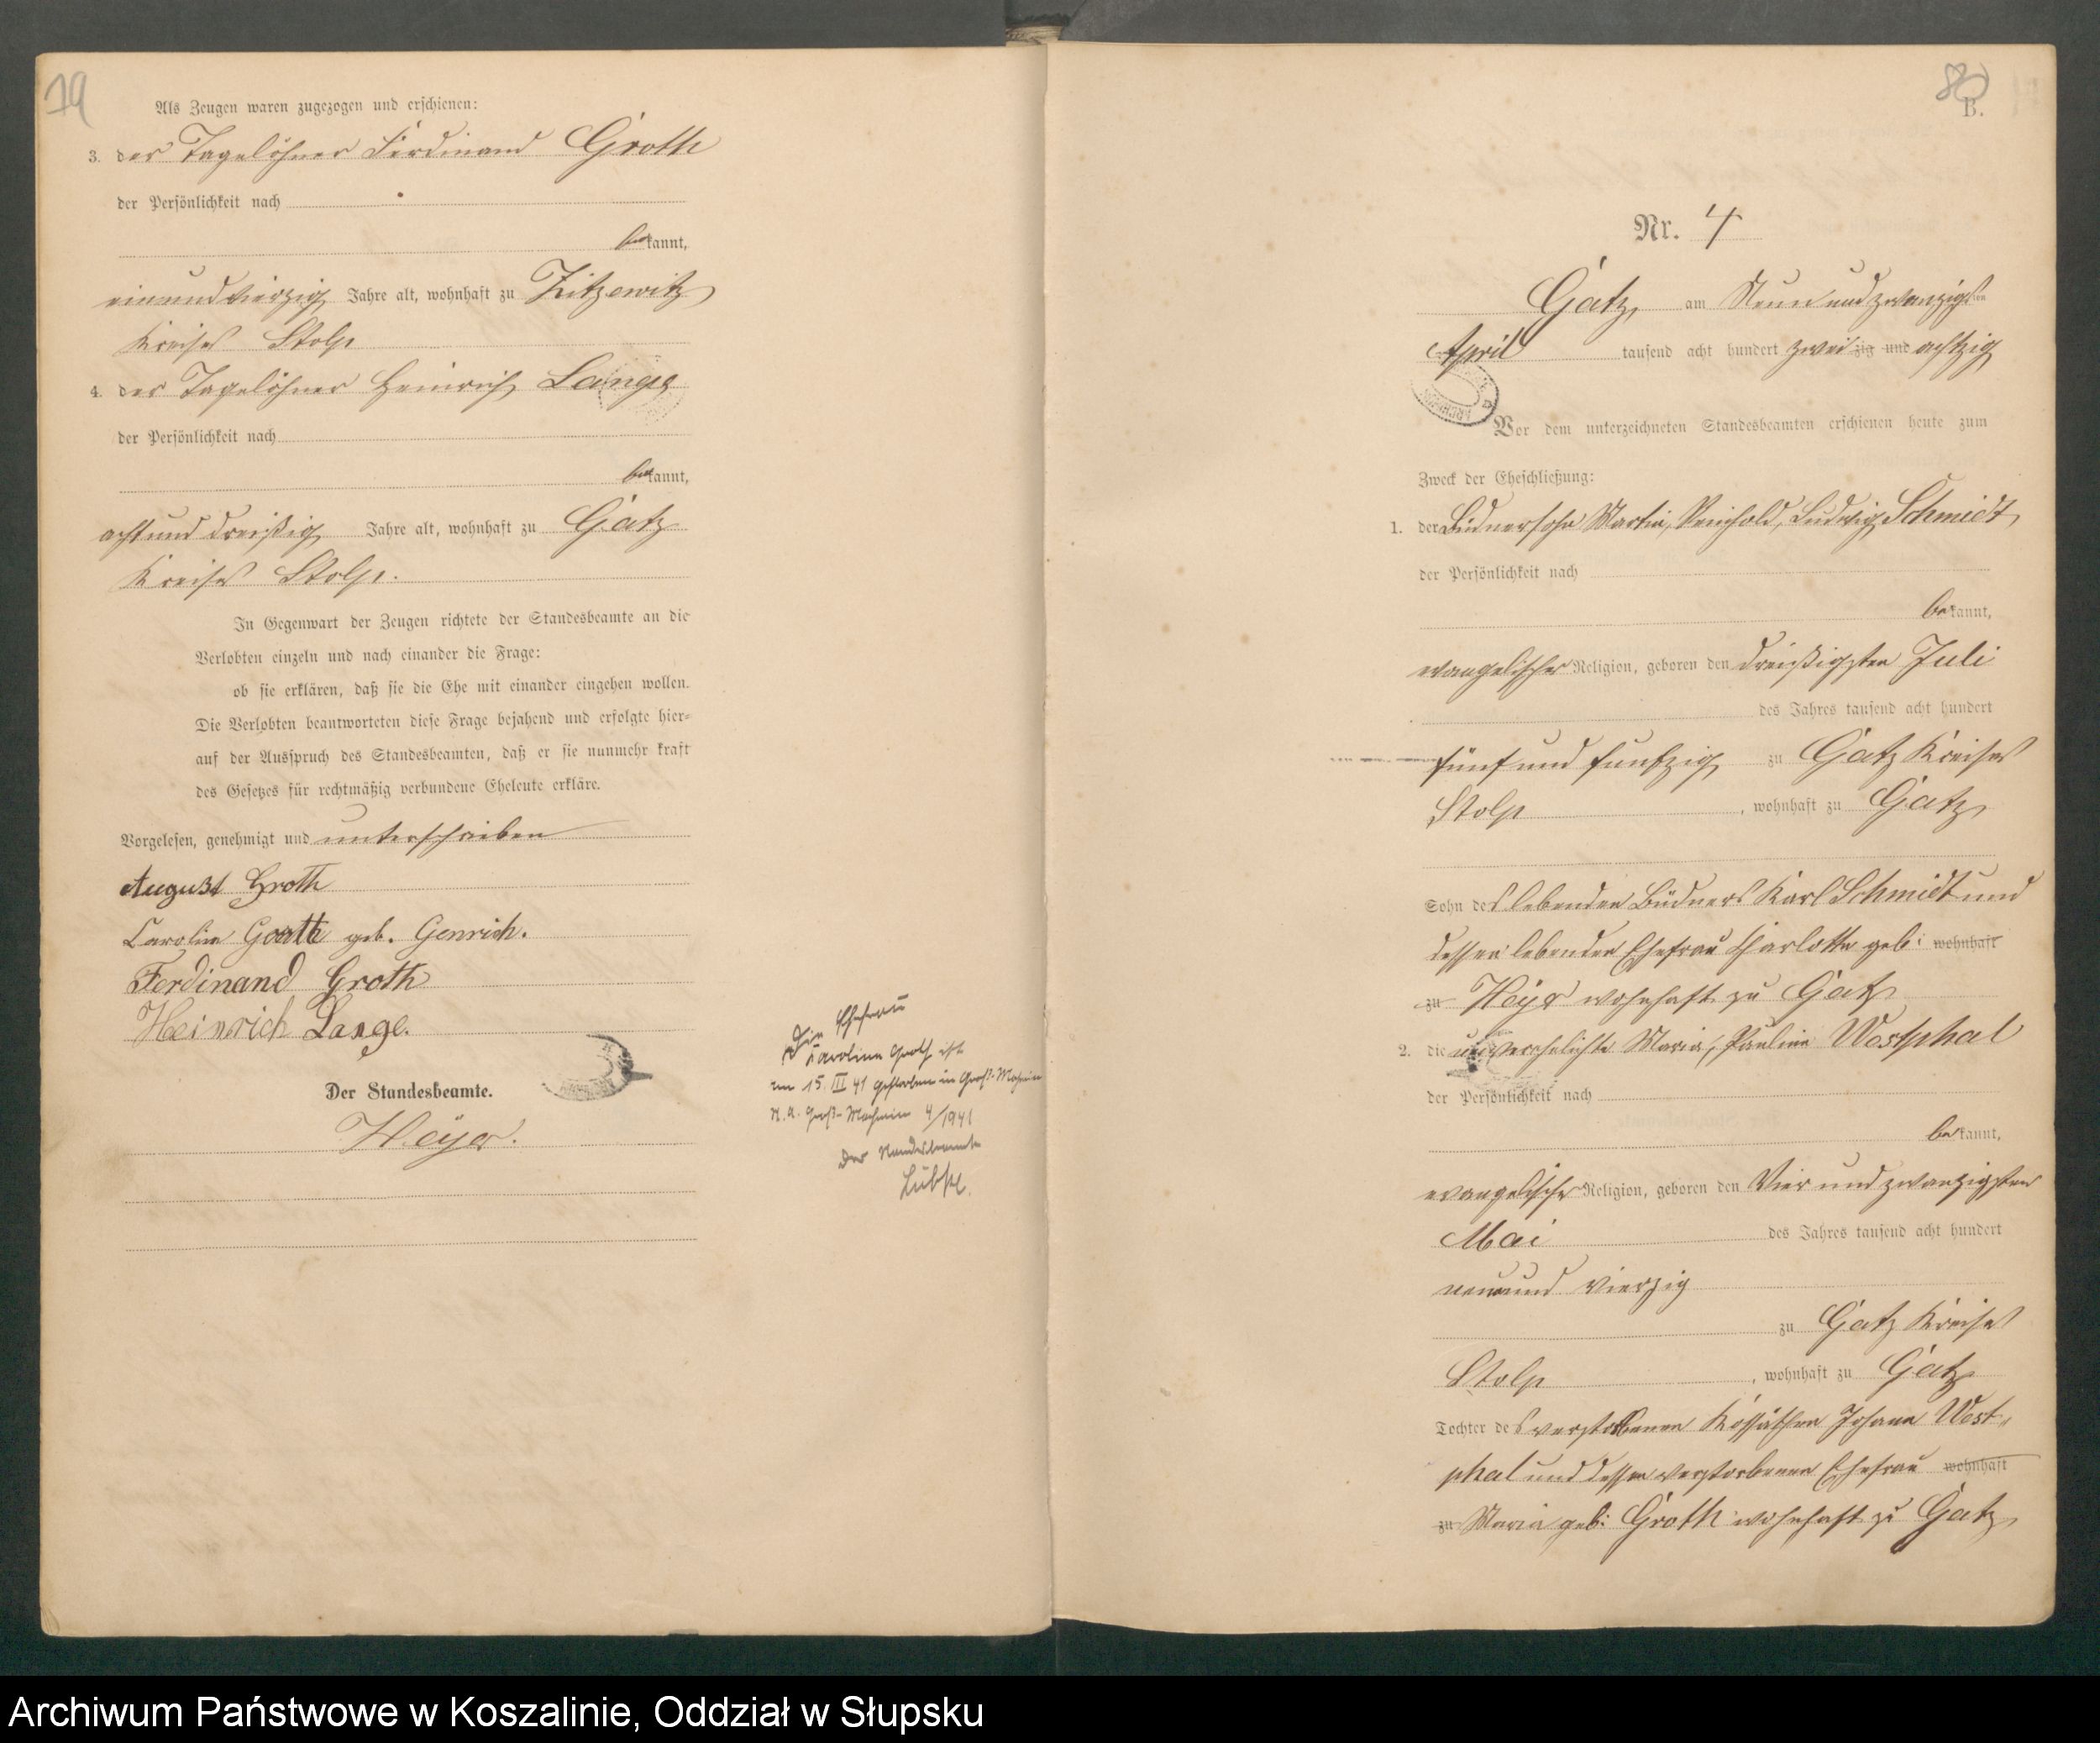 19
Als Zeugen waren zugezogen und erschienen:
3. der Tagelöhner Ferdinand Groth
der Persönlichkeit nach
bekannt,
einundvierzig Jahre alt, wohnhaft zu Zitzewitz
Kreises Stolp
4. der Tagelöhner Heinrich Lange
der Persönlichkeit nach
bekannt,
achtunddreißig Jahre alt, wohnhaft zu Gatz
Kreises Stolp.
In Gegenwart der Zeugen richtete der Standesbeamte an die
Verlobten einzeln und nach einander die Frage:
ob sie erklären, daß sie die Ehe mit einander eingehen wollen.
Die Verlobten beantworteten diese Frage bejahend und erfolgte hier-
auf der Ausspruch des Standesbeamten, daß er sie nunmehr kraft
des Gesetzes für rechtmäßig verbundene Eheleute erkläre.
Vorgelesen, genehmigt und unterschrieben
August Groth
Caroline Groth geb. Genrich.
Ferdinand Groth
Heinrich Lange.
Der Standesbeamte.
Heyer.
Die Ehefrau
Karoline Groth ist
am 15 III 41 gestorben in Groß-Machmin
St. A. Groß-Machmin 4/1941
Der Standesbeamte
Lübke.
80
B.
Nr. 4
Gatz, am Neun und zwanzigsten
April tausend acht hundert zwei zig und achtzig
Vor dem unterzeichneten Standesbeamten erschienen heute zum
Zweck der Eheschließung:
1. der Büdnersohn Martin, Reinhold, Ludwig Schmidt
der Persönlichkeit nach
bekannt,
evangelischer Religion, geboren den dreißigsten Juli
des Jahres tausend acht hundert
fünf und funfzig zu Gatz Kreises
Stolp, wohnhaft zu Gatz
Sohn des lebenden Büdners Karl Schmidt und
dessen lebenden Ehefrau Charlotte geb: wohnhaft
zu Heyer wohnhaft zu Gatz
2. die unverehelichte Maria, Pauline Westphal
der Persönlichkeit nach
bekannt,
evangelischer Religion, geboren den Vier und zwanzigsten
Mai des Jahres tausend acht hundert
neunund vierzig
zu Gatz Kreises
Stolp, wohnhaft zu Gatz
Tochter des verstorbenen Kossäthen Johann West-
phal und dessen verstorbenen Ehefrau wohnhaft
zu Maria geb: Groth wohnhaft zu Gatz
Archiwum Państwowe w Koszalinie, Oddział w Słupsku